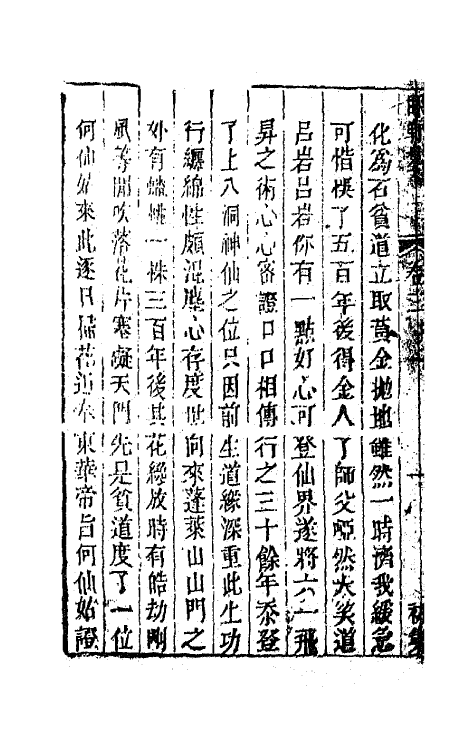 化爲石貧道立取黃金抛地雖然一時濟我緩急
可惜悞了五百年後得金人了師父啞然大笑道
呂岩呂岩你有一點好心可登仙界遂將六一飛
昇之術心心密證口口相傳行之三十餘年忝登
了上八洞神仙之位只因前生道緣深重此生功
行纏綿性頗混塵心存度世向來蓬萊山山門之
外有蟠桃一株三百年後其花纔放時有皓劫剛
風等閒吹落花片塞礙天門先是貧道度了一位
何仙姑來此逐日掃花近奉東華帝旨何仙姑證